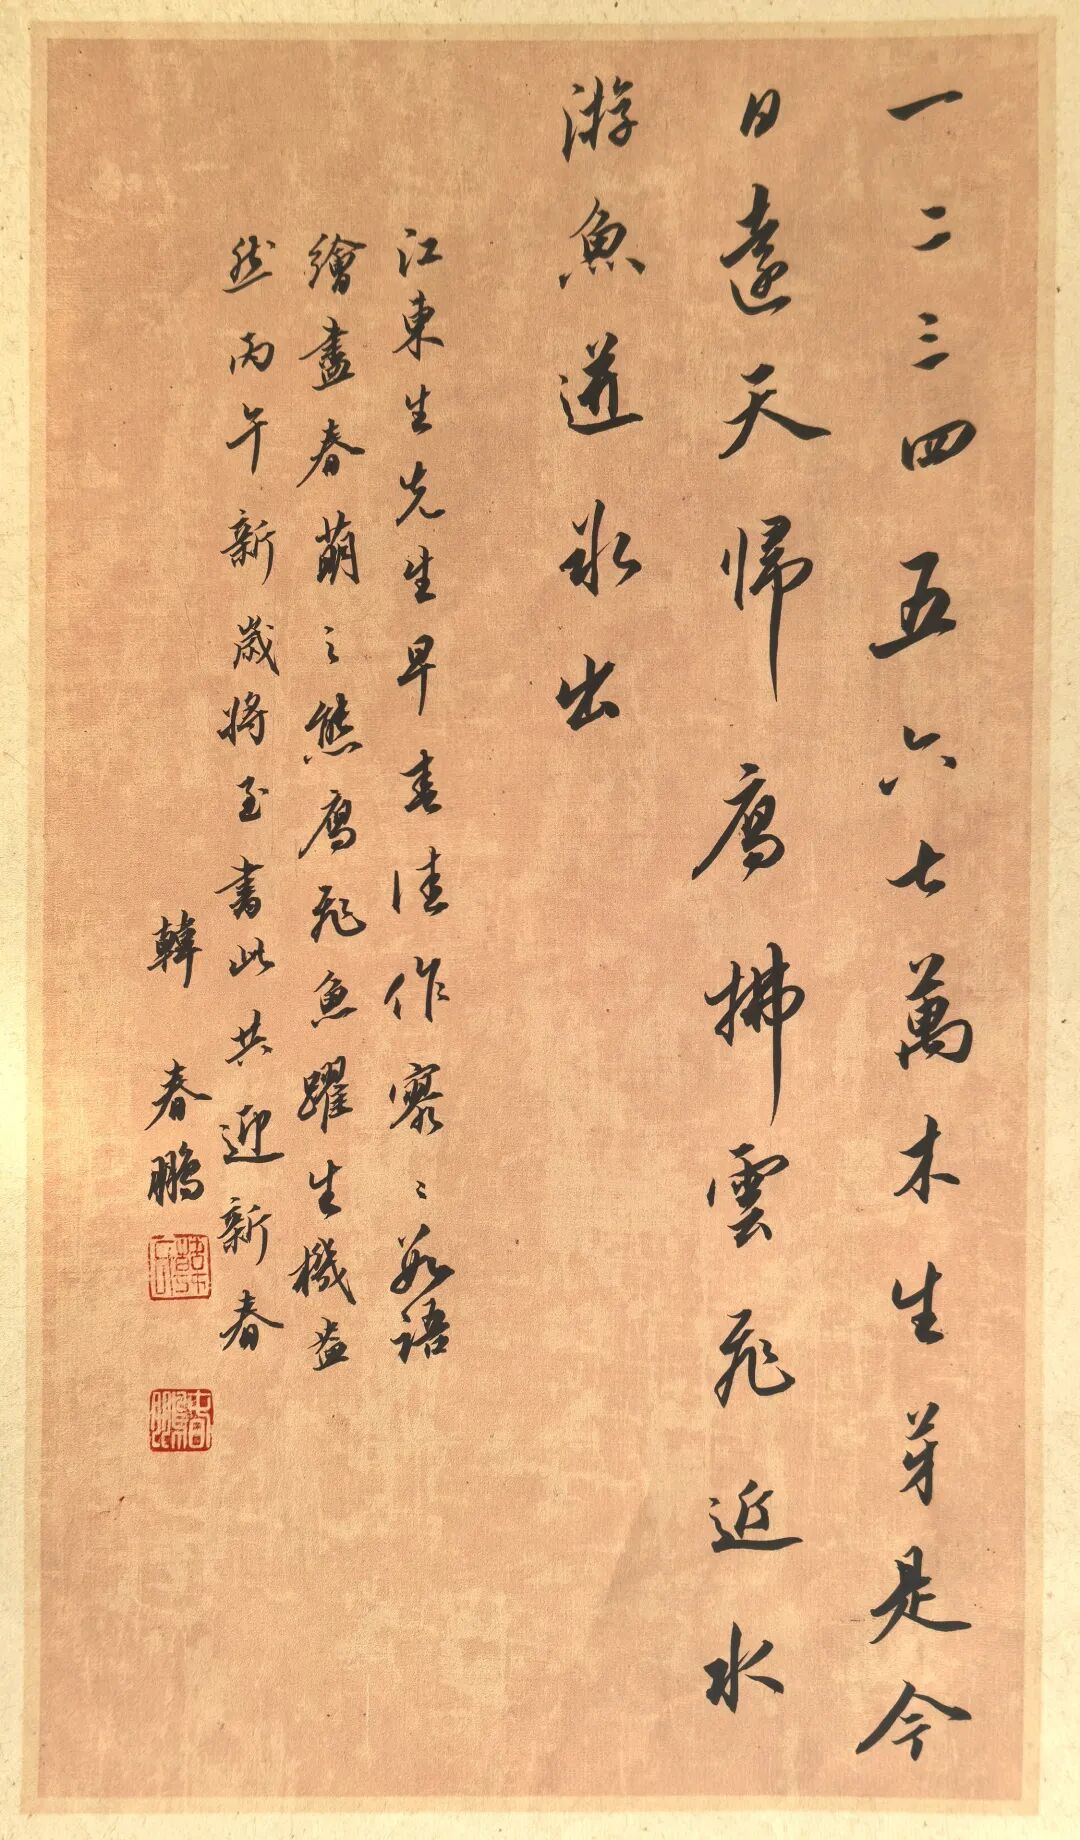 一二三四五六七萬木生芽是今
日遠天歸雁拂雲飛近水
游魚迸冰出
江東生先生早春佳作寥寥數語
繪盡春萌之態雁飛魚躍生機盎
然丙午新歲將至書此共迎新春
韓春鵬
春鵬